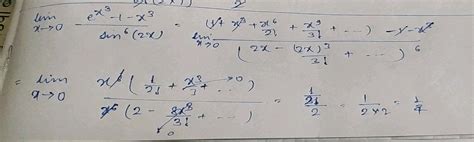 lim x→0 (e^x³ - 1 - x³) / (sin⁶(2x)) = lim x→0 ((1 + x³ + x⁶/2! + x⁹/3! + ...) - 1 - x³) / (2x - (2x)³/3! + ...)⁶
= lim x→0 x⁶(1/2! + x³/3! + ...) / x⁶(2 - 8x³/3! + ...) = (1/2!)/2 = 1/(2×2) = 1/4